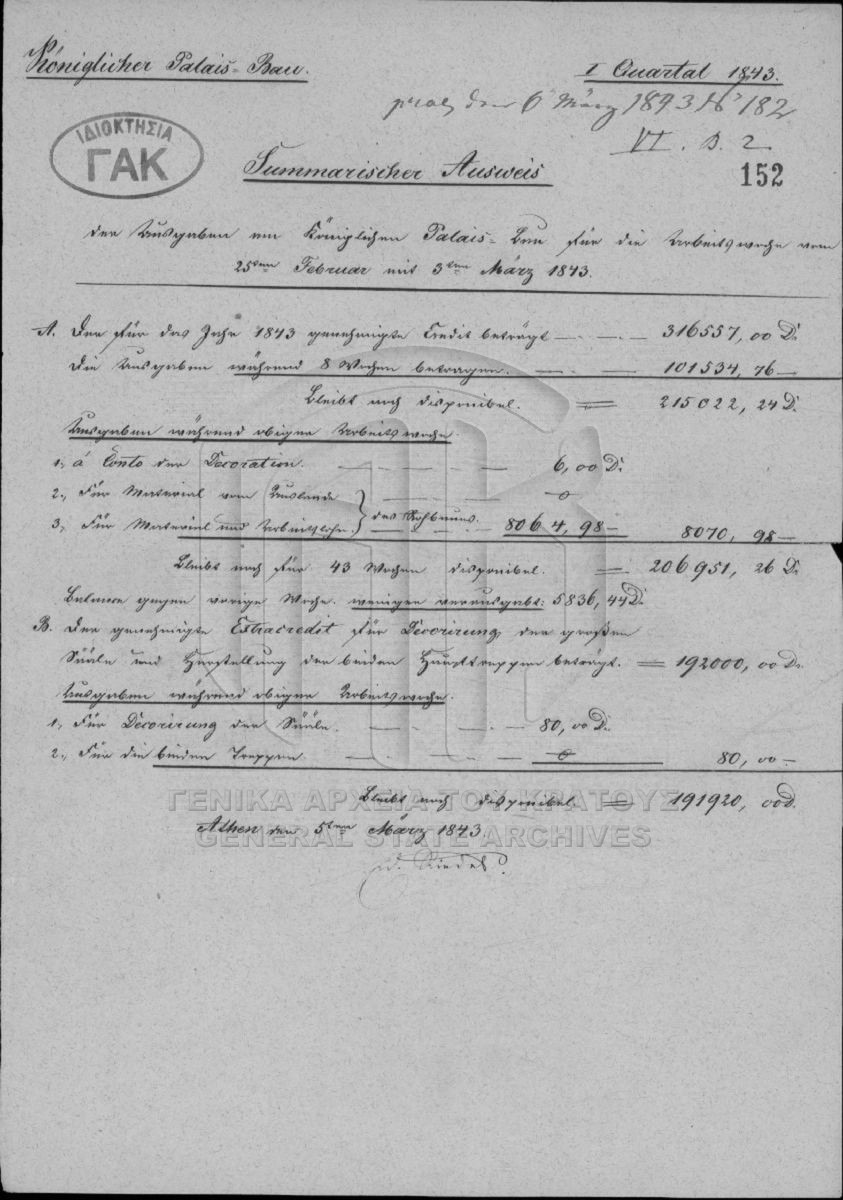 Königlicher Palais-Bau.
I Quartal 1843.
praes den 6 März 1843 No 182
VI. B. 2
ΙΔΙΟΚΤΗΣΙΑ
ΓΑΚ
Summarischer Ausweis
152
der Ausgaben am Königlichen Palais-Bau für die Arbeitswoche vom
25ten Februar mit 3ten März 1843.
A. Der für das Jahr 1843 genehmigte Credit beträgt — 316557, 00 D.
Die Ausgaben während 8 Wochen betragen. — 101534, 76 —
Bleibt noch disponibel. = 215022, 24 D.
Ausgaben während obiger Arbeitswoche.
1., á Conto der Decoration. — 6, 00 D.
2., Für Material vom Auslande — 0
3., Für Material und Arbeitslohn } des Rohbaues. — 8064, 98 — 8070, 98 —
Bleibt noch für 43 Wochen disponibel. = 206951, 26 D.
Balance gegen vorige Woche. weniger verausgabt: 5836, 44 D.
B. Der genehmigte Extracredit für Decorirung der großen
Sääle und Herstellung der beiden Haupttreppen beträgt. = 192000, 00 D.
Ausgaben während obiger Arbeitswoche.
1., Für Decorirung der Sääle. — 80, 00 D.
2., Für die beiden Treppen. — 0 80, 00 —
Bleibt noch disponibel = 191920, 00 D.
Athen den 5ten März 1843.
Ed. Riedel.
ΓΕΝΙΚΑ ΑΡΧΕΙΑ ΤΟΥ ΚΡΑΤΟΥΣ
GENERAL STATE ARCHIVES